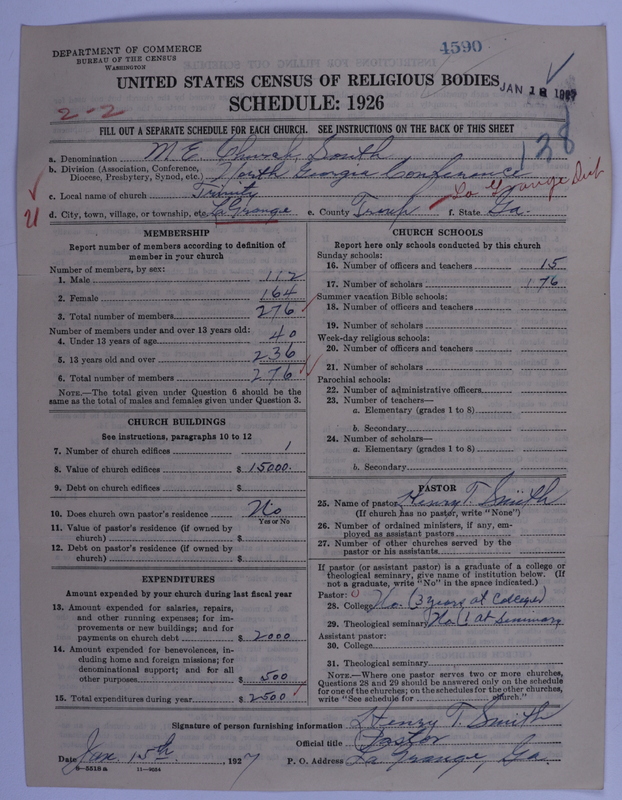 DEPARTMENT OF COMMERCE
BUREAU OF THE CENSUS
WASHINGTON
4590
UNITED STATES CENSUS OF RELIGIOUS BODIES
JAN 18 1927
SCHEDULE: 1926
2-2
138
FILL OUT A SEPARATE SCHEDULE FOR EACH CHURCH. SEE INSTRUCTIONS ON THE BACK OF THIS SHEET
a. Denomination M. E. Church, South
b. Division (Association, Conference, Diocese, Presbytery, Synod, etc.) North Georgia Conference
c. Local name of church Trinity
La Grange Dist
d. City, town, village, or township, etc. La Grange e. County Troup f. State Ga.
MEMBERSHIP
Report number of members according to definition of
member in your church
Number of members, by sex:
1. Male 112
2. Female 164
3. Total number of members 276
Number of members under and over 13 years old:
4. Under 13 years of age 40
5. 13 years old and over 236
6. Total number of members 276
NOTE.—The total given under Question 6 should be
same as the total of males and females given under Question 3.
CHURCH BUILDINGS
See instructions, paragraphs 10 to 12
7. Number of church edifices 1
8. Value of church edifices $ 15000.
9. Debt on church edifices $
10. Does church own pastor's residence No
Yes or No
11. Value of pastor's residence (if owned by
church) $
12. Debt on pastor's residence (if owned by
church) $
EXPENDITURES
Amount expended by your church during last fiscal year
13. Amount expended for salaries, repairs,
and other running expenses; for im-
provements or new buildings; and for
payments on church debt $ 2000
14. Amount expended for benevolences, in-
cluding home and foreign missions; for
denominational support; and for all
other purposes $ 500
15. Total expenditures during year $ 2500
CHURCH SCHOOLS
Report here only schools conducted by this church
Sunday schools:
16. Number of officers and teachers 15
17. Number of scholars 176
Summer vacation Bible schools:
18. Number of officers and teachers
19. Number of scholars
Week-day religious schools:
20. Number of officers and teachers
21. Number of scholars
Parochial schools:
22. Number of administrative officers
23. Number of teachers—
a. Elementary (grades 1 to 8)
b. Secondary
24. Number of scholars—
a. Elementary (grades 1 to 8)
b. Secondary
PASTOR
25. Name of pastor Henry T. Smith
(If church has no pastor, write "None")
26. Number of ordained ministers, if any, em-
ployed as assistant pastors
27. Number of other churches served by the
pastor or his assistants
If pastor (or assistant pastor) is a graduate of a college or
theological seminary, give name of institution below. (If
not a graduate, write "No" in the space indicated.)
Pastor:
28. College No. (3 years at College)
29. Theological seminary No. (1 at Seminary
Assistant pastor:
30. College
31. Theological seminary
NOTE.—Where one pastor serves two or more churches,
Questions 28 and 29 should be answered only on the schedule
for one of the churches; on the schedules for the other churches,
write "See schedule for church."
Signature of person furnishing information Henry T. Smith
Official title Pastor
Date Jan. 15th, 1927 P. O. Address La Grange, Ga.
8-5518a 11-9034